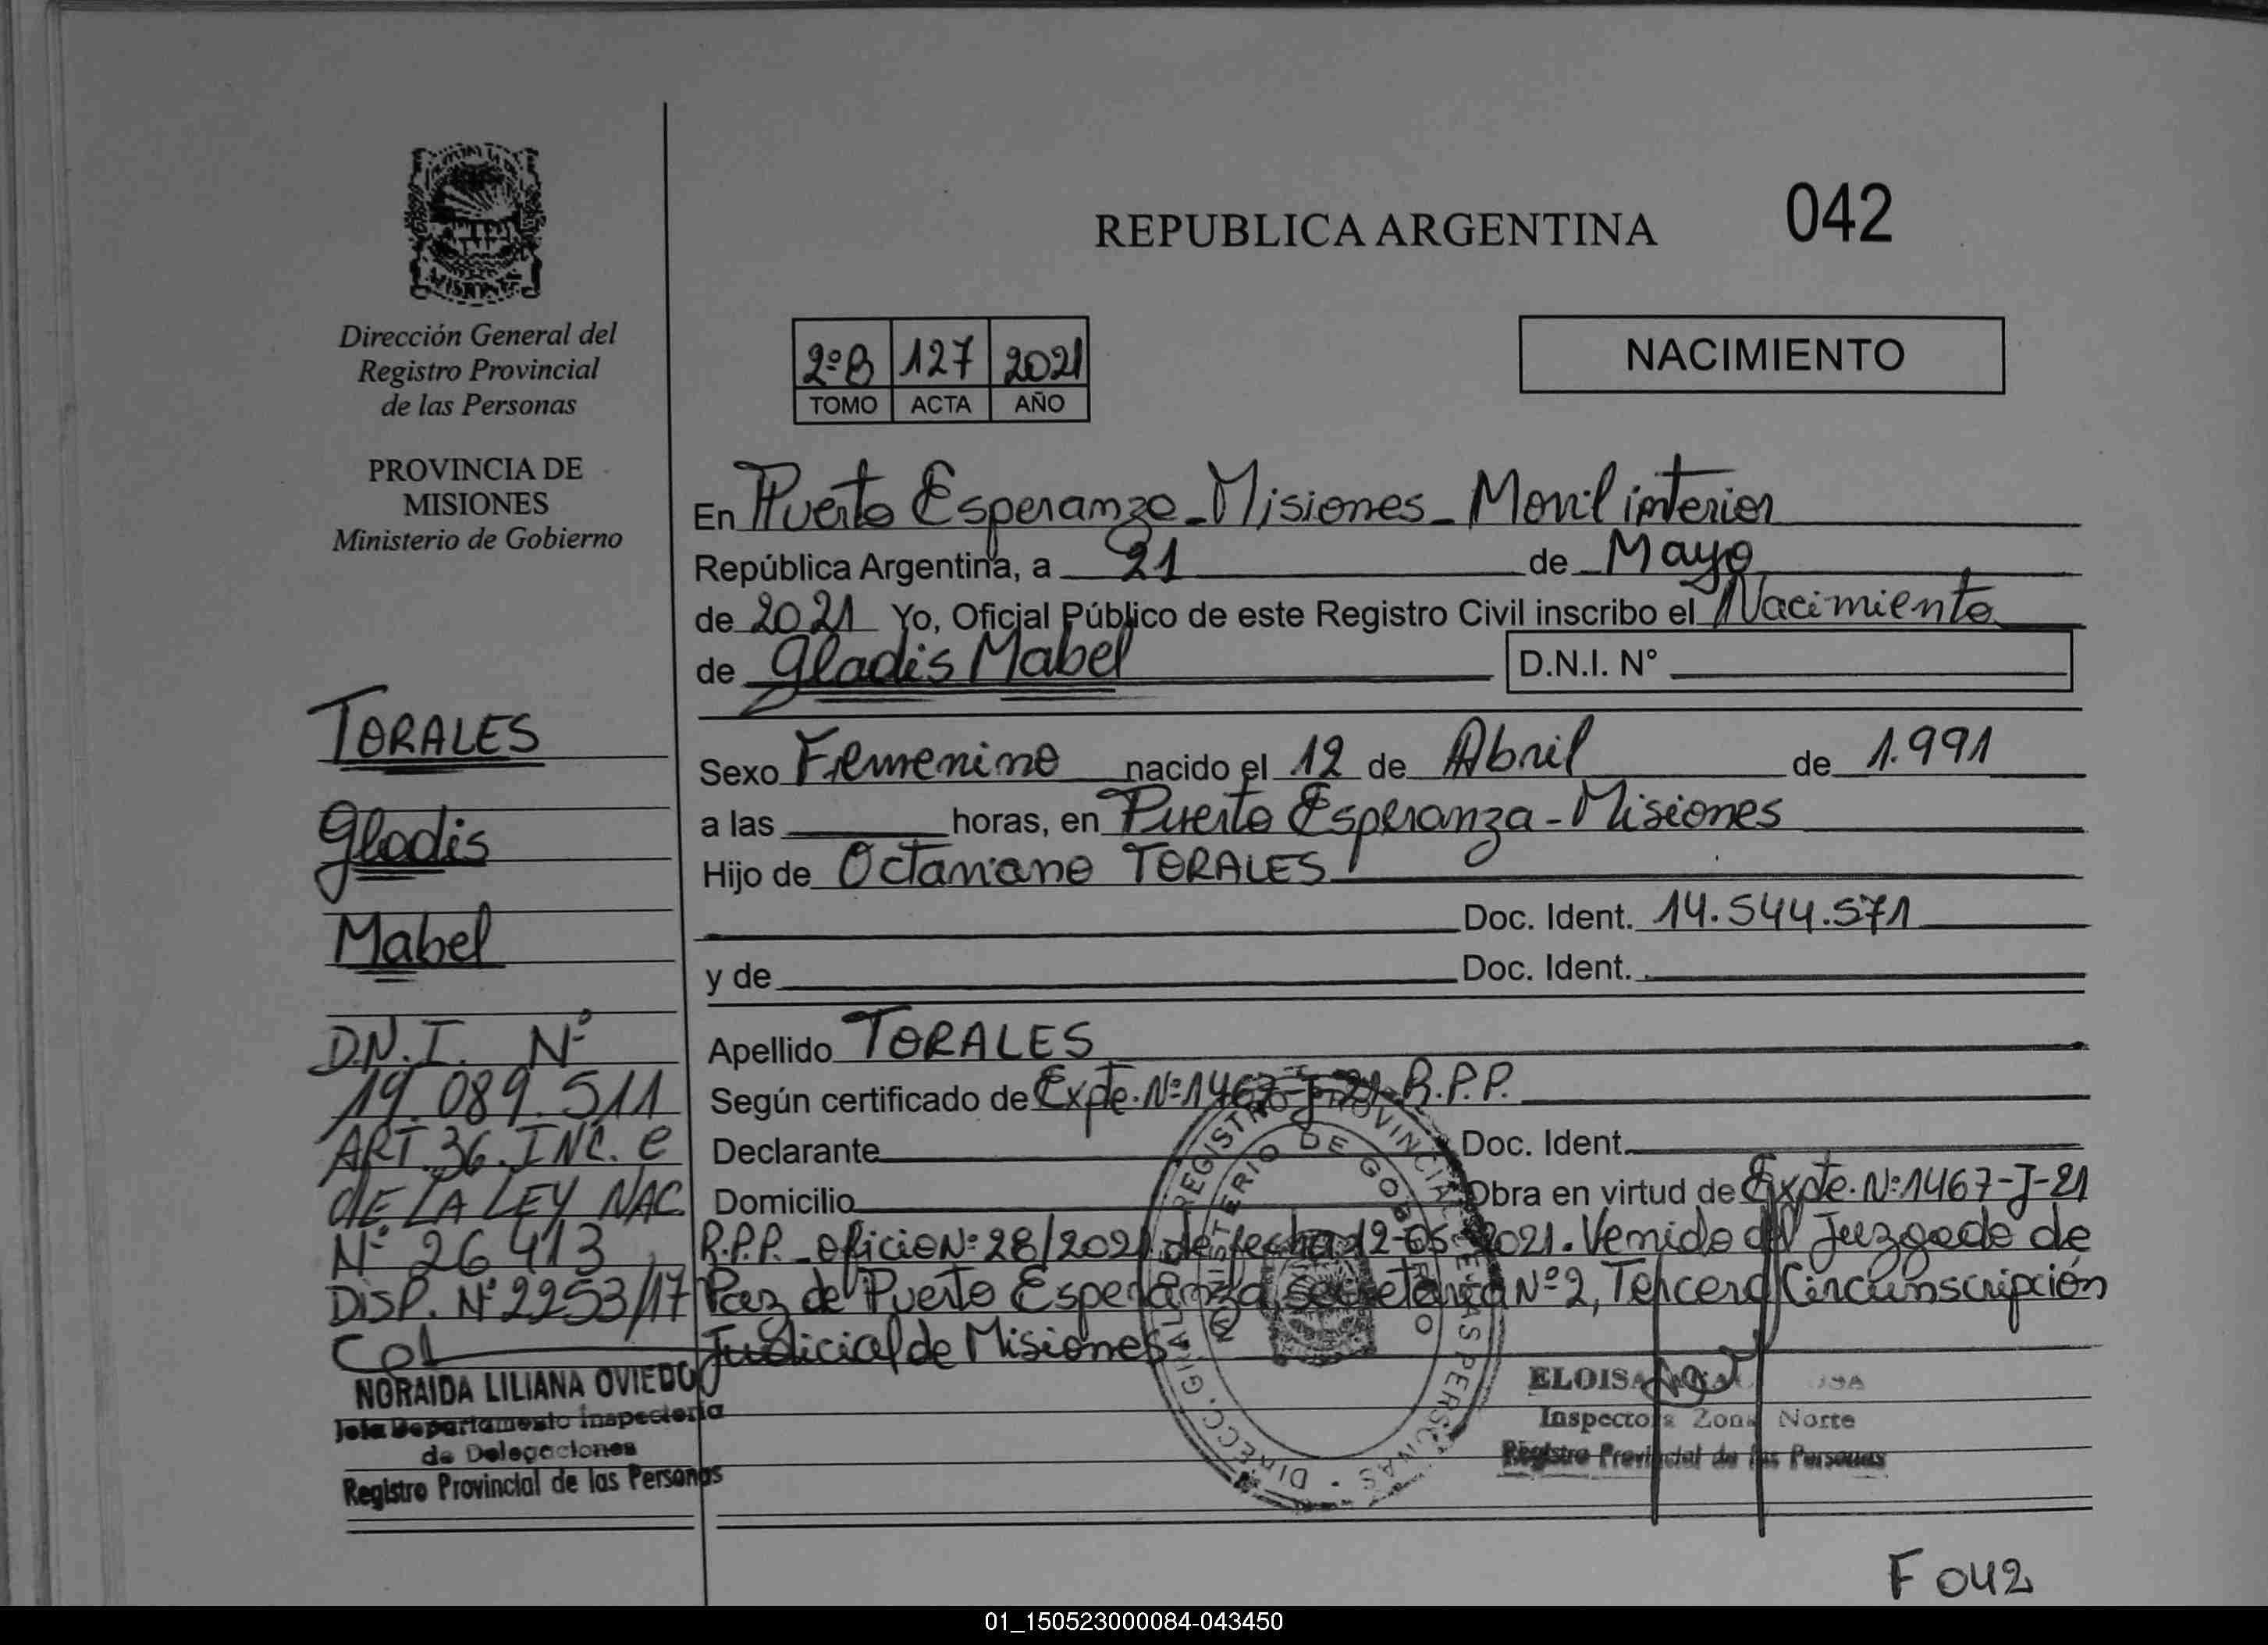 REPUBLICA ARGENTINA
042
Dirección General del
Registro Provincial
de las Personas
PROVINCIA DE
MISIONES
Ministerio de Gobierno
2ºB 127 2021
TOMO ACTA AÑO
NACIMIENTO
En Puerto Esperanza - Misiones - Movil interior
República Argentina, a 21 de Mayo
de 2021 Yo, Oficial Público de este Registro Civil inscribo el Nacimiento
de Gladis Mabel D.N.I. N°
Sexo Femenino nacido el 12 de Abril de 1.991
a las horas, en Puerto Esperanza - Misiones
Hijo de Octaviano TORALES
Doc. Ident. 14.544.571
y de Doc. Ident.
Apellido TORALES
Según certificado de Expte. Nº 1467-J-21. R.P.P.
Declarante Doc. Ident.
Domicilio Obra en virtud de Expte. Nº 1467-J-21
R.P.P. oficio Nº 28/2021 de fecha 12-05-2021. Venido del Juzgado de
Paz de Puerto Esperanza, secretaria Nº 2, Tercera Circunscripción
Judicial de Misiones
TORALES
Gladis
Mabel
D.N.I. Nº
19.089.511
ART. 36. INC. e
dE LA LEY NAC.
Nº 26 413
DISP. Nº 2253/17
NORAIDA LILIANA OVIEDO
Jefa Departamento Inspectoria
de Delegaciones
Registro Provincial de las Personas
DIRECC. GRAL REGISTRO PROVINCIAL DE LAS PERSONAS
MINISTERIO DE GOBIERNO
ELOISA
Inspectora Zona Norte
Registro Provincial de las Personas
F 042
01_150523000084-043450